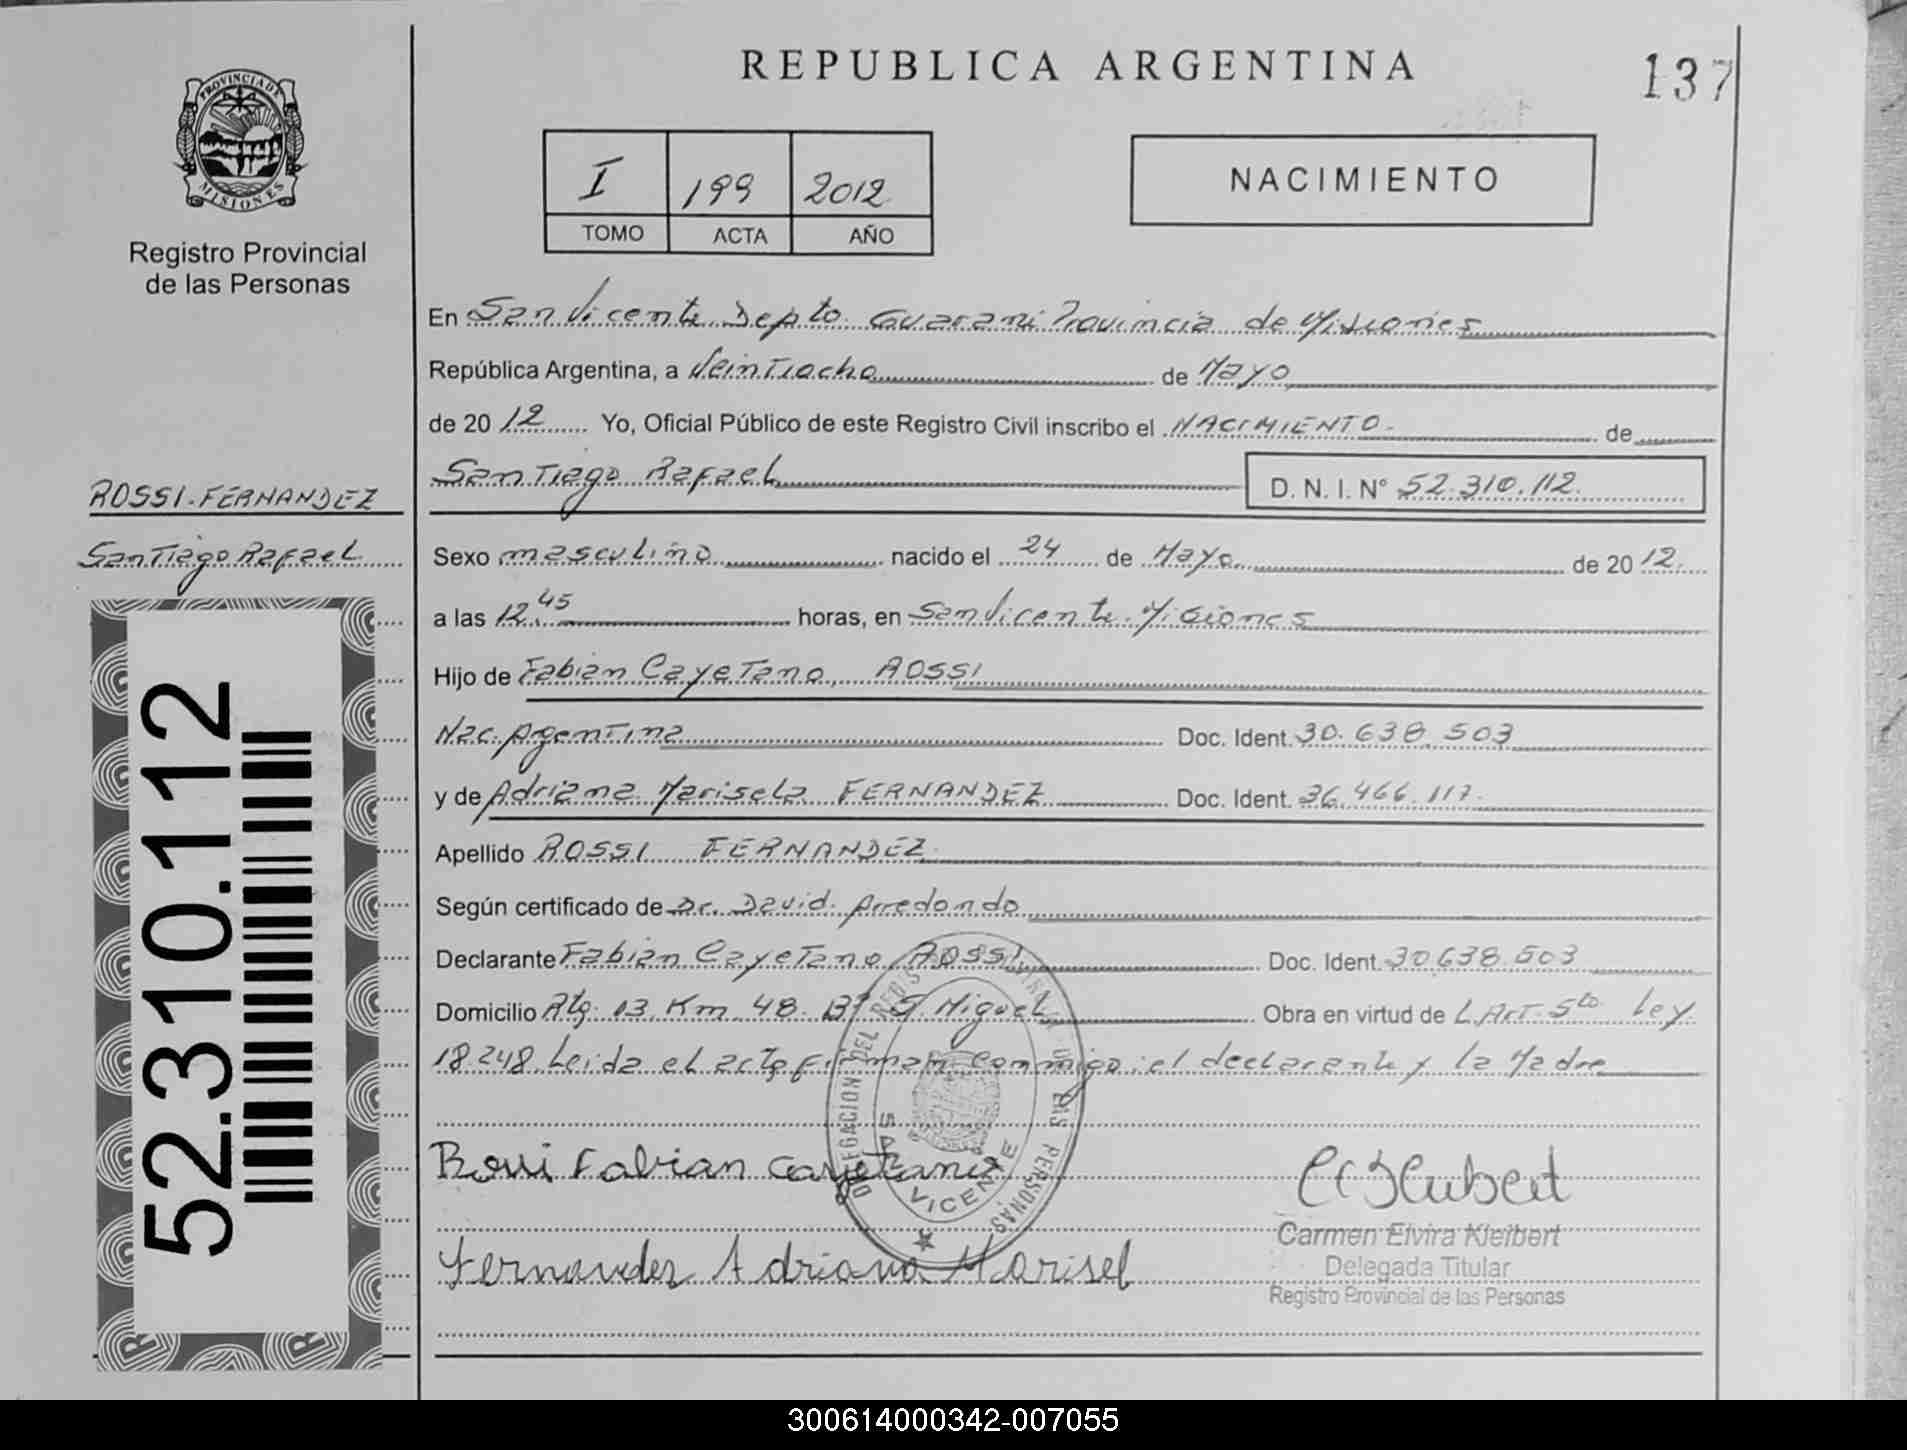 PROVINCIA DE
MISIONES
Registro Provincial
de las Personas
ROSSI-FERNANDEZ
Santiago Rafael
52.310.112
REPUBLICA ARGENTINA
137
I 199 2012
TOMO ACTA AÑO
NACIMIENTO
En San Vicente Depto Guarani Provincia de Misiones
República Argentina, a Veintiocho de Mayo
de 2012 Yo, Oficial Público de este Registro Civil inscribo el NACIMIENTO- de
Santiago Rafael D. N. I. N° 52.310.112.
Sexo masculino nacido el 24 de Mayo de 2012.
a las 12.45 horas, en San Vicente Misiones
Hijo de Fabian Cayetano ROSSI
Nac. Argentina Doc. Ident. 30.638.503
y de Adriana Marisela FERNANDEZ Doc. Ident. 36.466.117.
Apellido ROSSI FERNANDEZ
Según certificado de Dr. David Arredondo
Declarante Fabian Cayetano ROSSI Doc. Ident. 30.638.503
Domicilio Rta. 13 Km 48. B° S. Miguel Obra en virtud de L. Art. 5to Ley
18.248. Leida el acta firman conmigo: el declarante y la Madre
DELEGACION DEL REGISTRO DE LAS PERSONAS
SAN VICENTE
Rossi Fabian Cayetano
Fernandez Adriana Marisel
Carmen Elvira Kleibert
Delegada Titular
Registro Provincial de las Personas
300614000342-007055